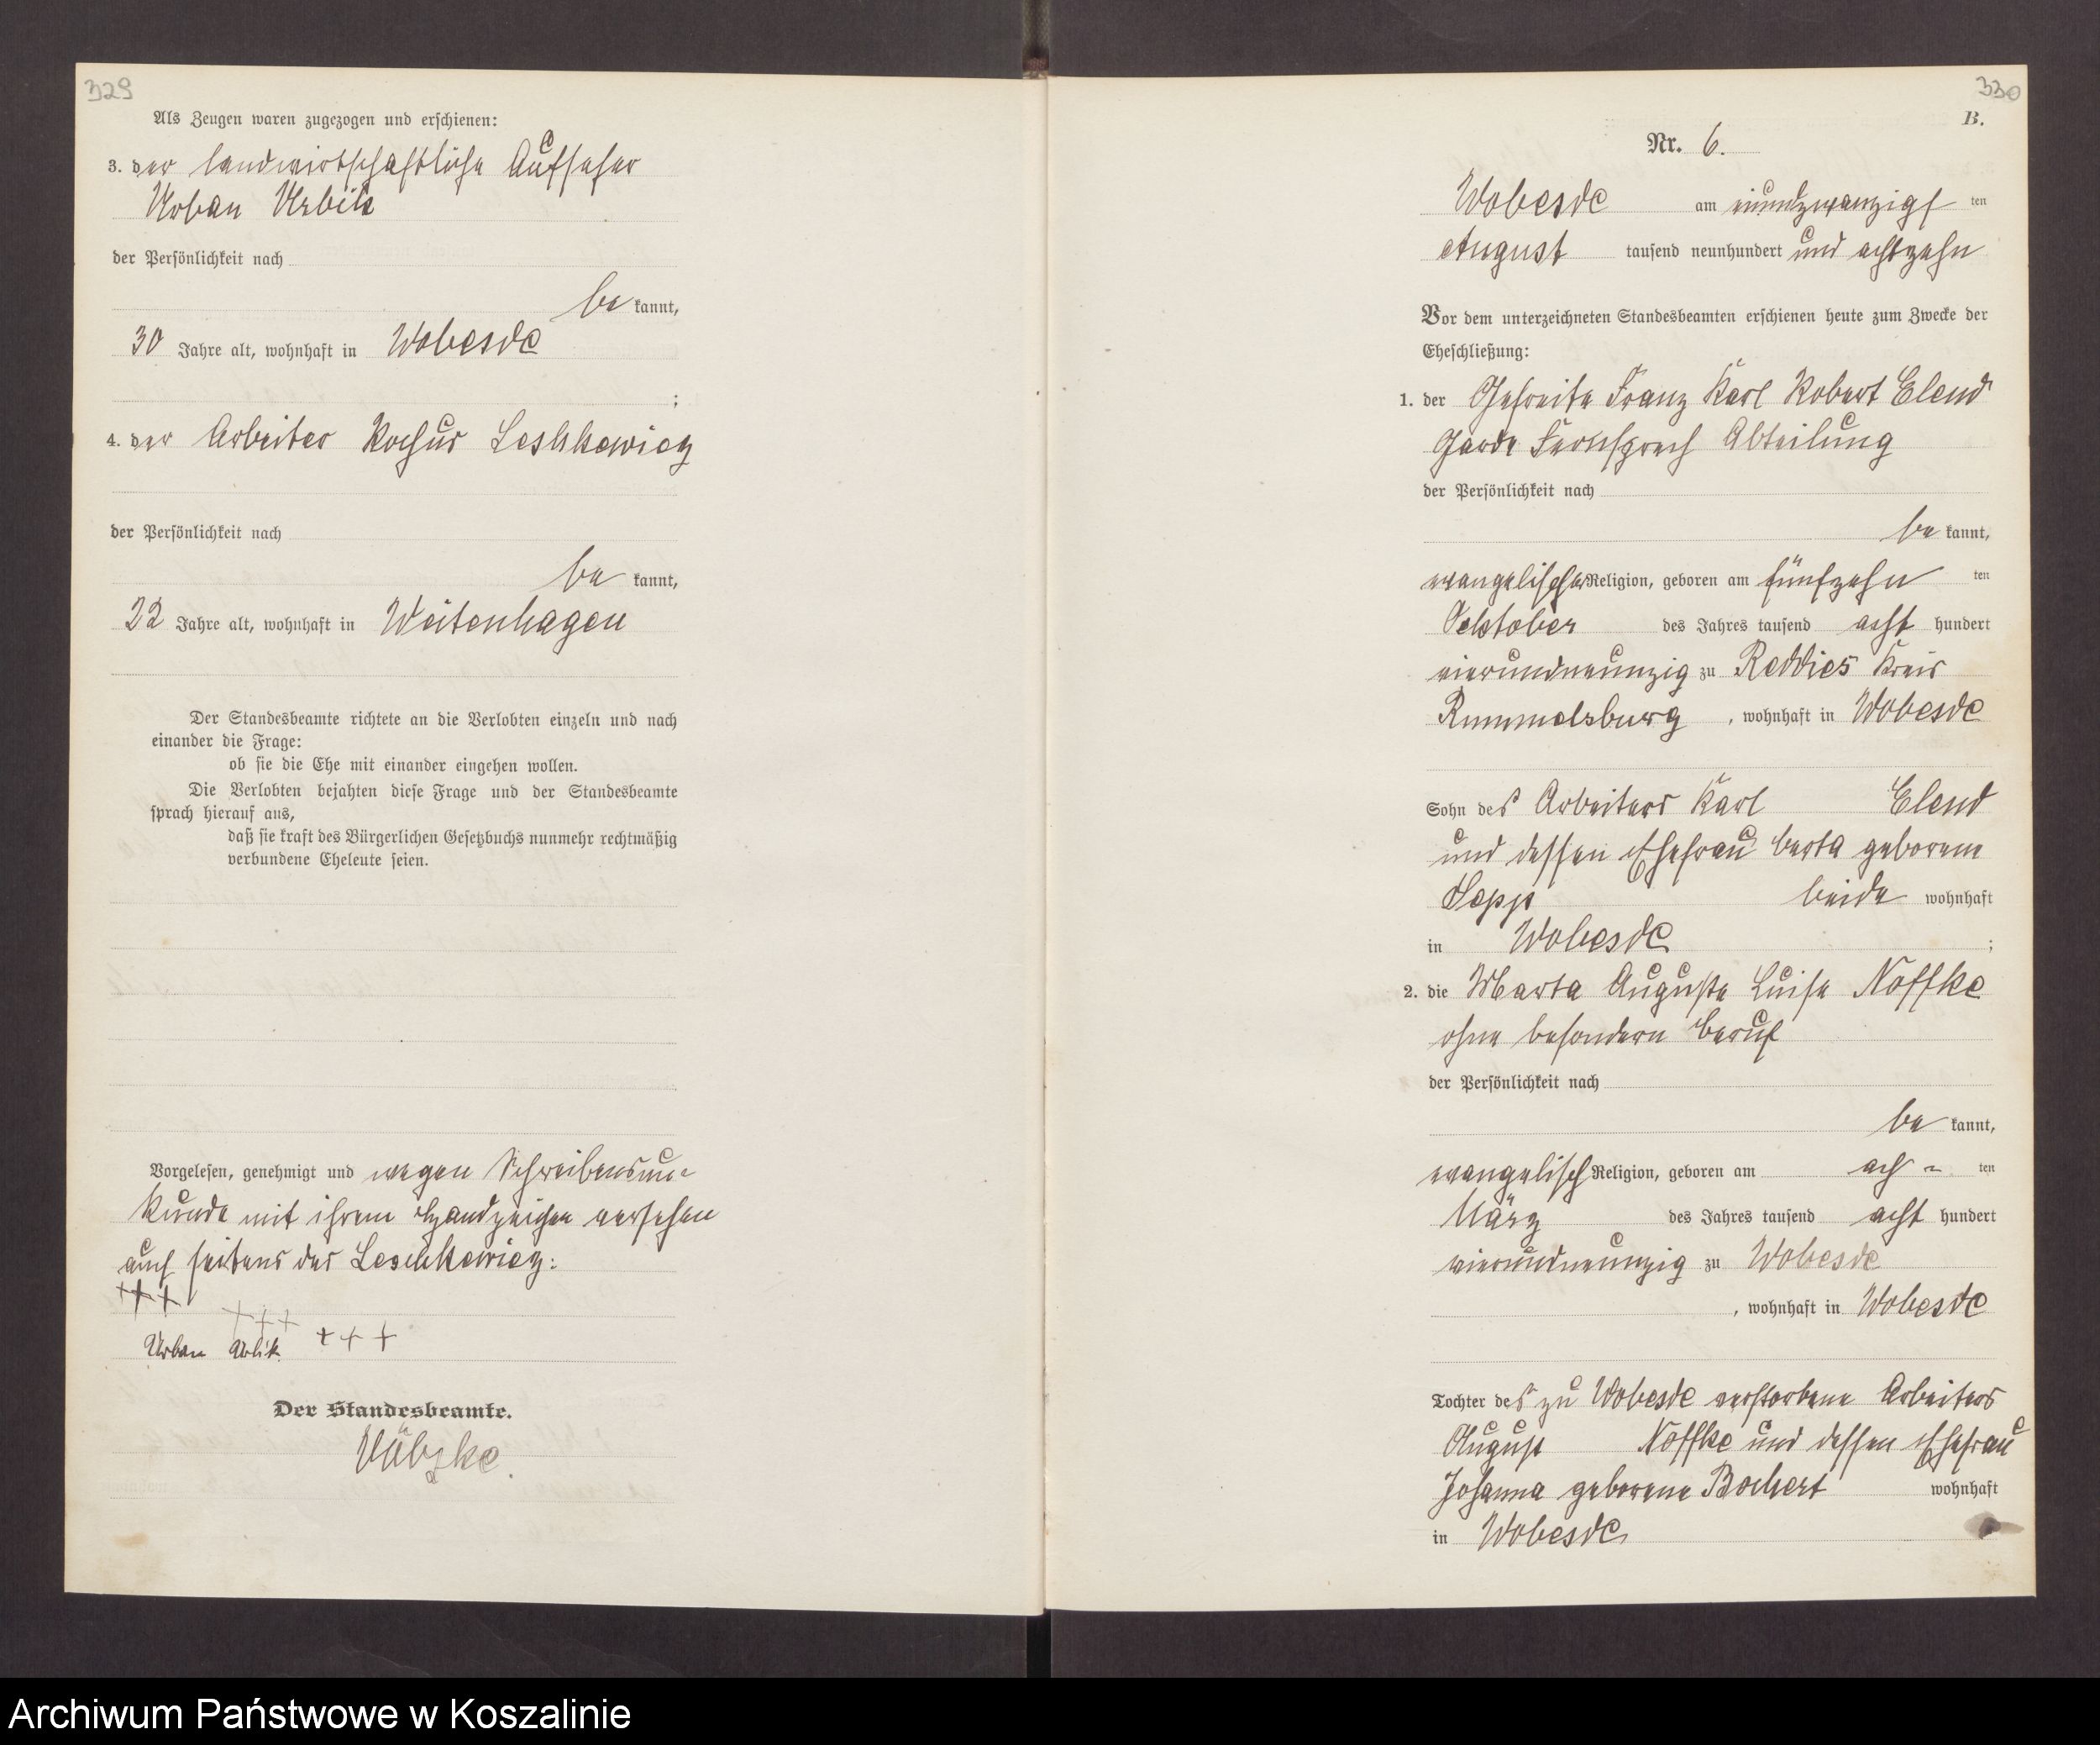 329
Als Zeugen waren zugezogen und erschienen:
3. der landwirtschaftliche Aufseher
Urban Urbik
der Persönlichkeit nach
be kannt,
30 Jahre alt, wohnhaft in Wobesde
;
4. der Arbeiter Rochus Leschkewicz
der Persönlichkeit nach
be kannt,
22 Jahre alt, wohnhaft in Weitenhagen
Der Standesbeamte richtete an die Verlobten einzeln und nach
einander die Frage:
ob sie die Ehe mit einander eingehen wollen.
Die Verlobten bejahten diese Frage und der Standesbeamte
sprach hierauf aus,
daß sie kraft des Bürgerlichen Gesetzbuchs nunmehr rechtmäßig
verbundene Eheleute seien.
Vorgelesen, genehmigt und wegen Schreibensun-
kunde mit ihrem Handzeichen versehen
auch seitens des Leschkewicz:
+++
+++
Urban +++
Der Standesbeamte.
330
B.
Nr. 6.
Wobesde am einundzwanzigs ten
August tausend neunhundert und achtzehn
Vor dem unterzeichneten Standesbeamten erschienen heute zum Zwecke der
Eheschließung:
1. der Gefreite Franz Karl Robert Elend
Garde Fernsprech Abteilung
der Persönlichkeit nach
be kannt,
evangelischer Religion, geboren am fünfzehn ten
Oktober des Jahres tausend acht hundert
vierundneunzig zu Reddies Kreis
Rummelsburg, wohnhaft in Wobesde
Sohn des Arbeiters Karl Elend
und dessen Ehefrau Berta geborene
beide wohnhaft
in Wobesde ;
2. die Marta Auguste Luise Noffke
ohne besondern Beruf
der Persönlichkeit nach
be kannt,
evangelisch Religion, geboren am ach- ten
März des Jahres tausend acht hundert
vierundneunzig zu Wobesde
, wohnhaft in Wobesde
Tochter des zu Wobesde verstorbene Arbeiters
August Noffke und dessen Ehefrau
Johanna geborene Bochert wohnhaft
in Wobesde
Archiwum Państwowe w Koszalinie